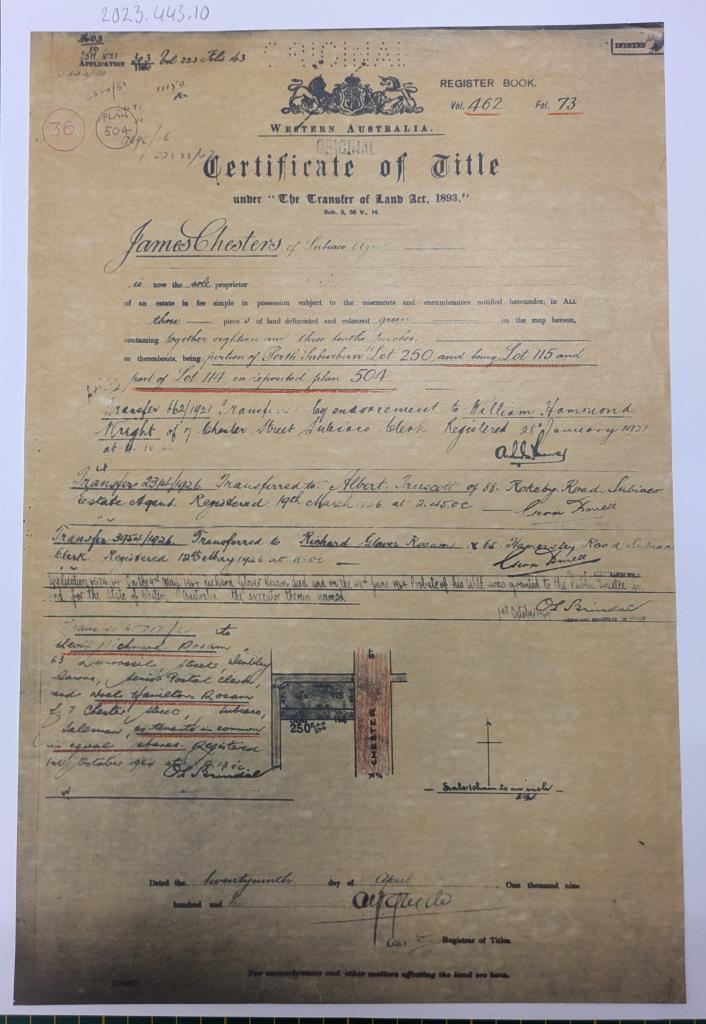 2023.443.10
3603/10
2511/1521
APPLICATION 303/1900 Vol 223 Folio 163
INDEXED
ORIGINAL
REGISTER BOOK.
Vol. 462 Fol. 73
36
PLAN 504
WESTERN AUSTRALIA.
ORIGINAL
Certificate of Title
under "The Transfer of Land Act, 1893."
Sch. 5, 56 V., 14.
James Chesters of Subiaco
is now the sole proprietor
of an estate in fee simple in possession subject to the easements and encumbrances notified hereunder, in ALL
those pieces of land delineated and coloured green on the map hereon,
containing together eighteen and three tenths perches.
or thereabouts, being portion of Perth Suburban Lot 250 and being Lot 115 and
part of Lot 114 on deposited plan 504.
Transfer 662/1921 Transferred by endorsement to William Hammond
Wright of 7 Chester Street Subiaco Clerk Registered 28th January 1921
at 11.
Transfer 2314/1926 Transferred to Albert Truscott of 88 Rokeby Road Subiaco
Estate Agent. Registered 19th March 1926 at 2.45 oc
Transfer 3954/1926. Transferred to Richard Glover Rosam of 65 Hamersley Road Subiaco
Clerk Registered 12th May 1926 at 11. oc
On the 9th May 1964 Richard Glover Rosam died and on the 24th June 1964 Probate of his Will was granted to the Public Trustee in
and for the State of Western Australia the executor therein named
1st October 1964
Transfer to
Richmond Rosam
63 Street, Wembley
Downs, Senior Postal Clerk,
and Noel Hamilton Rosam
of 7 Chester Street, Subiaco,
Salesman, as tenants in common
in equal shares. Registered
1st October 1964 at 9.13 oc
115
114
250
CHESTER ST
Scale 1 chain to an inch
Dated the twentyninth day of April One thousand nine
hundred and
Registrar of Titles.
For encumbrances and other matters affecting the land see back.